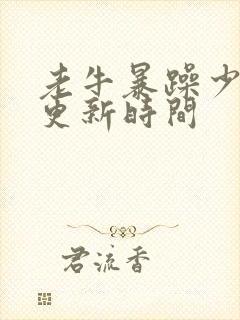 老牛暴躁少
更新時間
君流香